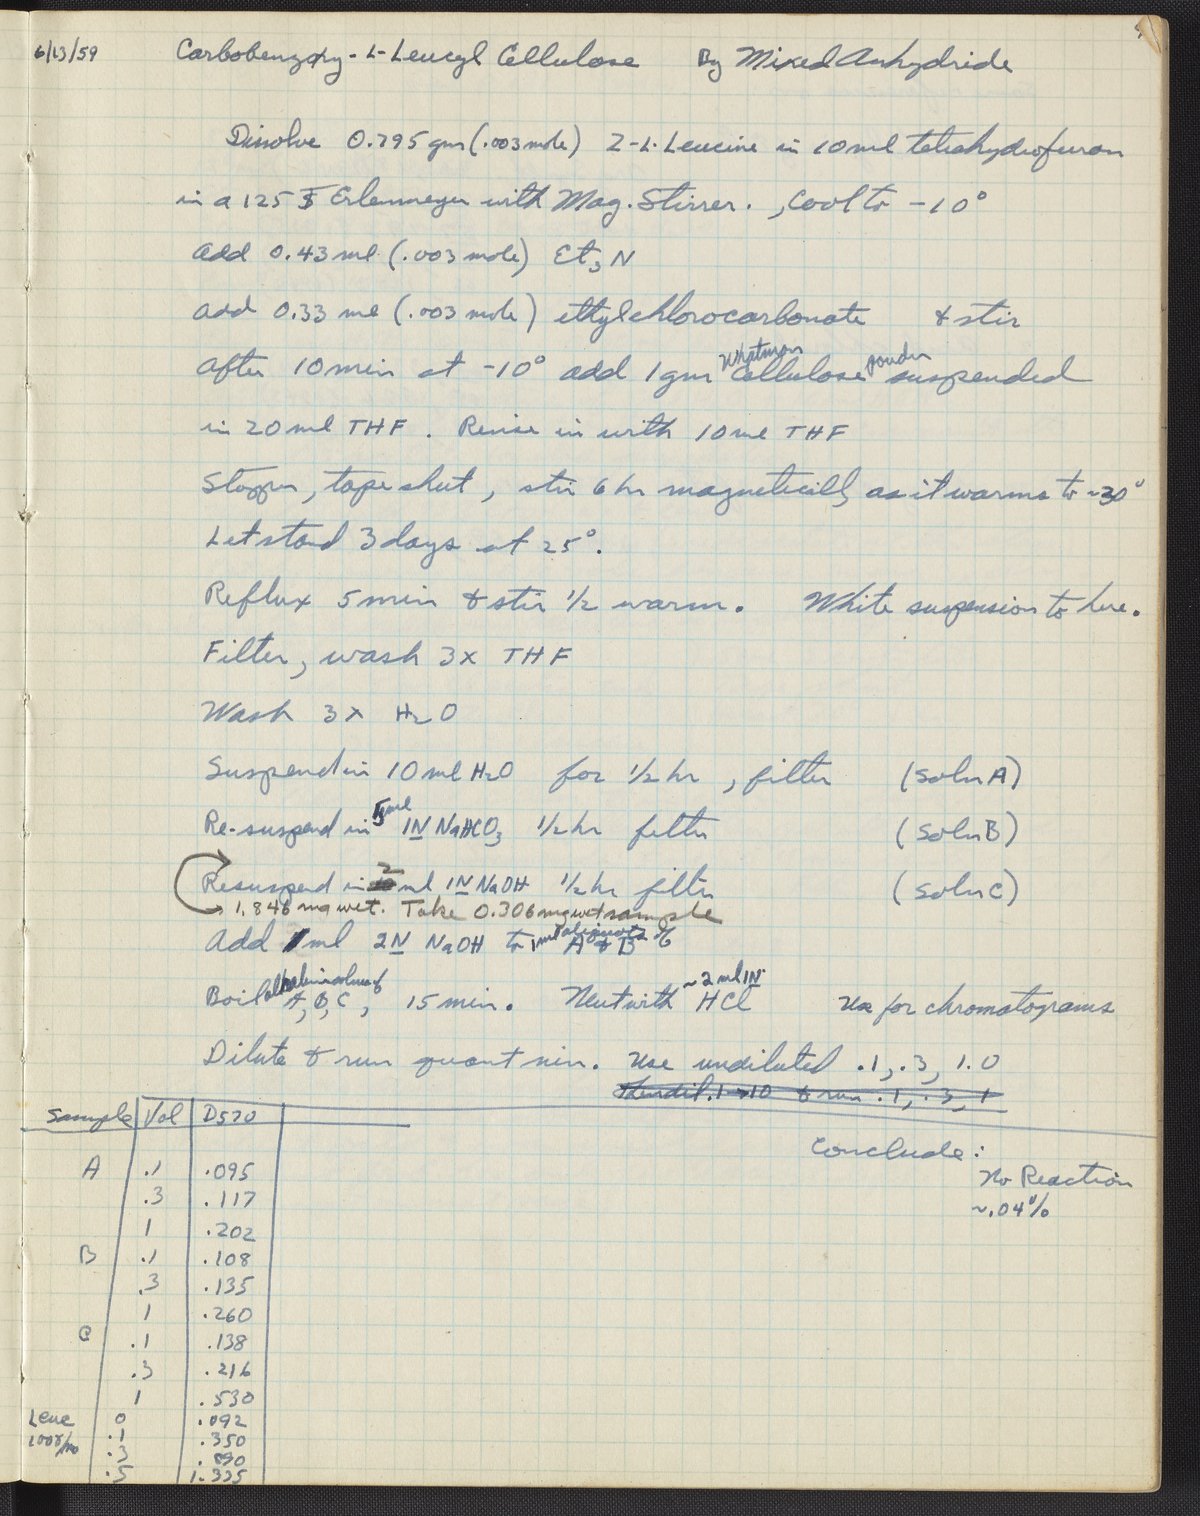 6/13/59 Carbobenzoxy-L-Leucyl Cellulose By Mixed Anhydride
Dissolve 0.795 gm (.003 mole) Z-L-Leucine in 10 ml tetrahydrofuran
in a 125 Erlenmeyer with Mag. Stirrer., Cool to -10°
Add 0.43 ml (.003 mole) Et3N
Add 0.33 ml (.003 mole) ethylchlorocarbonate & stir
After 10 min at -10° add 1 gm Whatman Cellulose powder suspended
in 20 ml THF. Rinse in with 10 ml THF
Stopper, tape shut, stir 6 hr magnetically as it warms to ~30°
Let stand 3 days at 25°.
Reflux 5 min & stir 1/2 warm. White suspension to here.
Filter, wash 3x THF
Wash 3x H2O
Suspend in 10 ml H2O for 1/2 hr, filter (Soln A)
Re-suspend in 5 ml 1N NaHCO3 1/2 hr filter (Soln B)
Resuspend in 2 ml 1N NaOH 1/2 hr filter (Soln C)
1.846 mg wet. Take 0.306 mg wet sample
Add 1 ml 2N NaOH to 1 ml aliquots of A & B
Boil alkaline solns of A, B, C, 15 min. Neut with ~2 ml 1N HCl Use for chromatograms
Dilute & run quant nin. Use undiluted .1, .3, 1.0
Then dil. 1→10 & run .1, .3, 1
Sample Vol D570
Conclude:
No Reaction
~.04%
A .1 .095
.3 .117
1 .202
B .1 .108
.3 .135
1 .260
C .1 .138
.3 .216
1 .530
Leuc 0 .092
100γ/ml .1 .350
.3 .890
.5 1.335